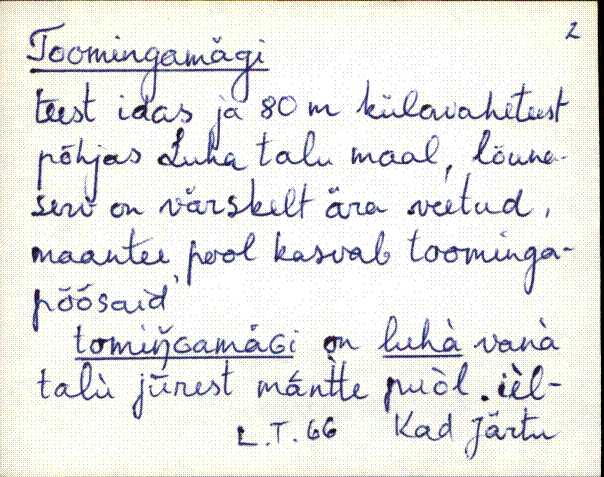 2
Toomingamägi
teest idas ja 80 m külavaheteest
põhjas Luha talu maal, lõuna-
serv on värskelt ära veetud,
maantee pool kasvab toominga-
põõsaid
tomiŋ̀ɢamäɢi on luhà vanà
talù jūrest mántte puòl. ièl-
L.T. 66 Kad Järtu